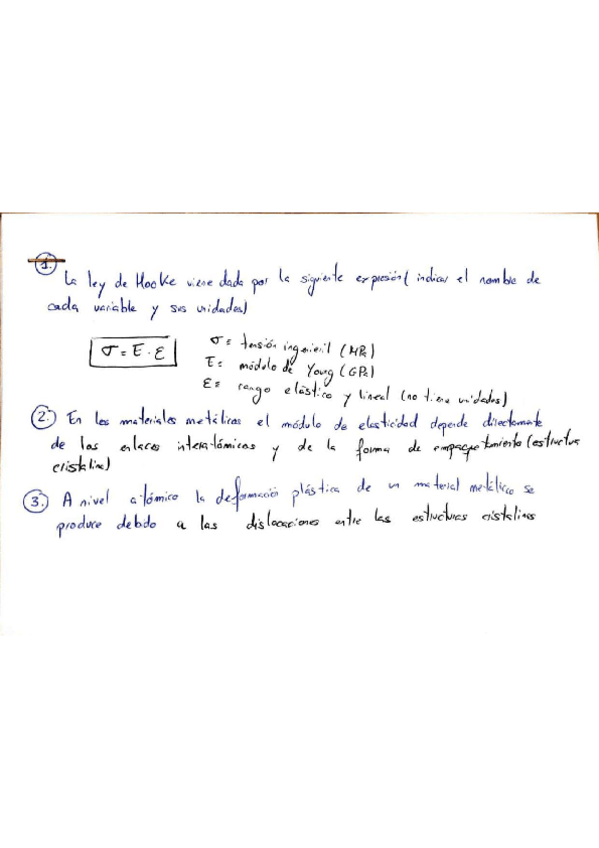 1.
La ley de Hooke viene dada por la siguiente expresión (indicar el nombre de
cada variable y sus unidades)
σ = E · ε
σ = tensión ingenieril (MPa)
E = módulo de Young (GPa)
ε = rango elástico y lineal (no tiene unidades)
2. En los materiales metálicos el módulo de elasticidad depende directamente
de los enlaces interatómicos y de la forma de empaquetamiento (estructura
cristalina)
3. A nivel atómico la deformació plástica de un material metálico se
produce debdo a las dislocaciones entre las estructuras cristalinas